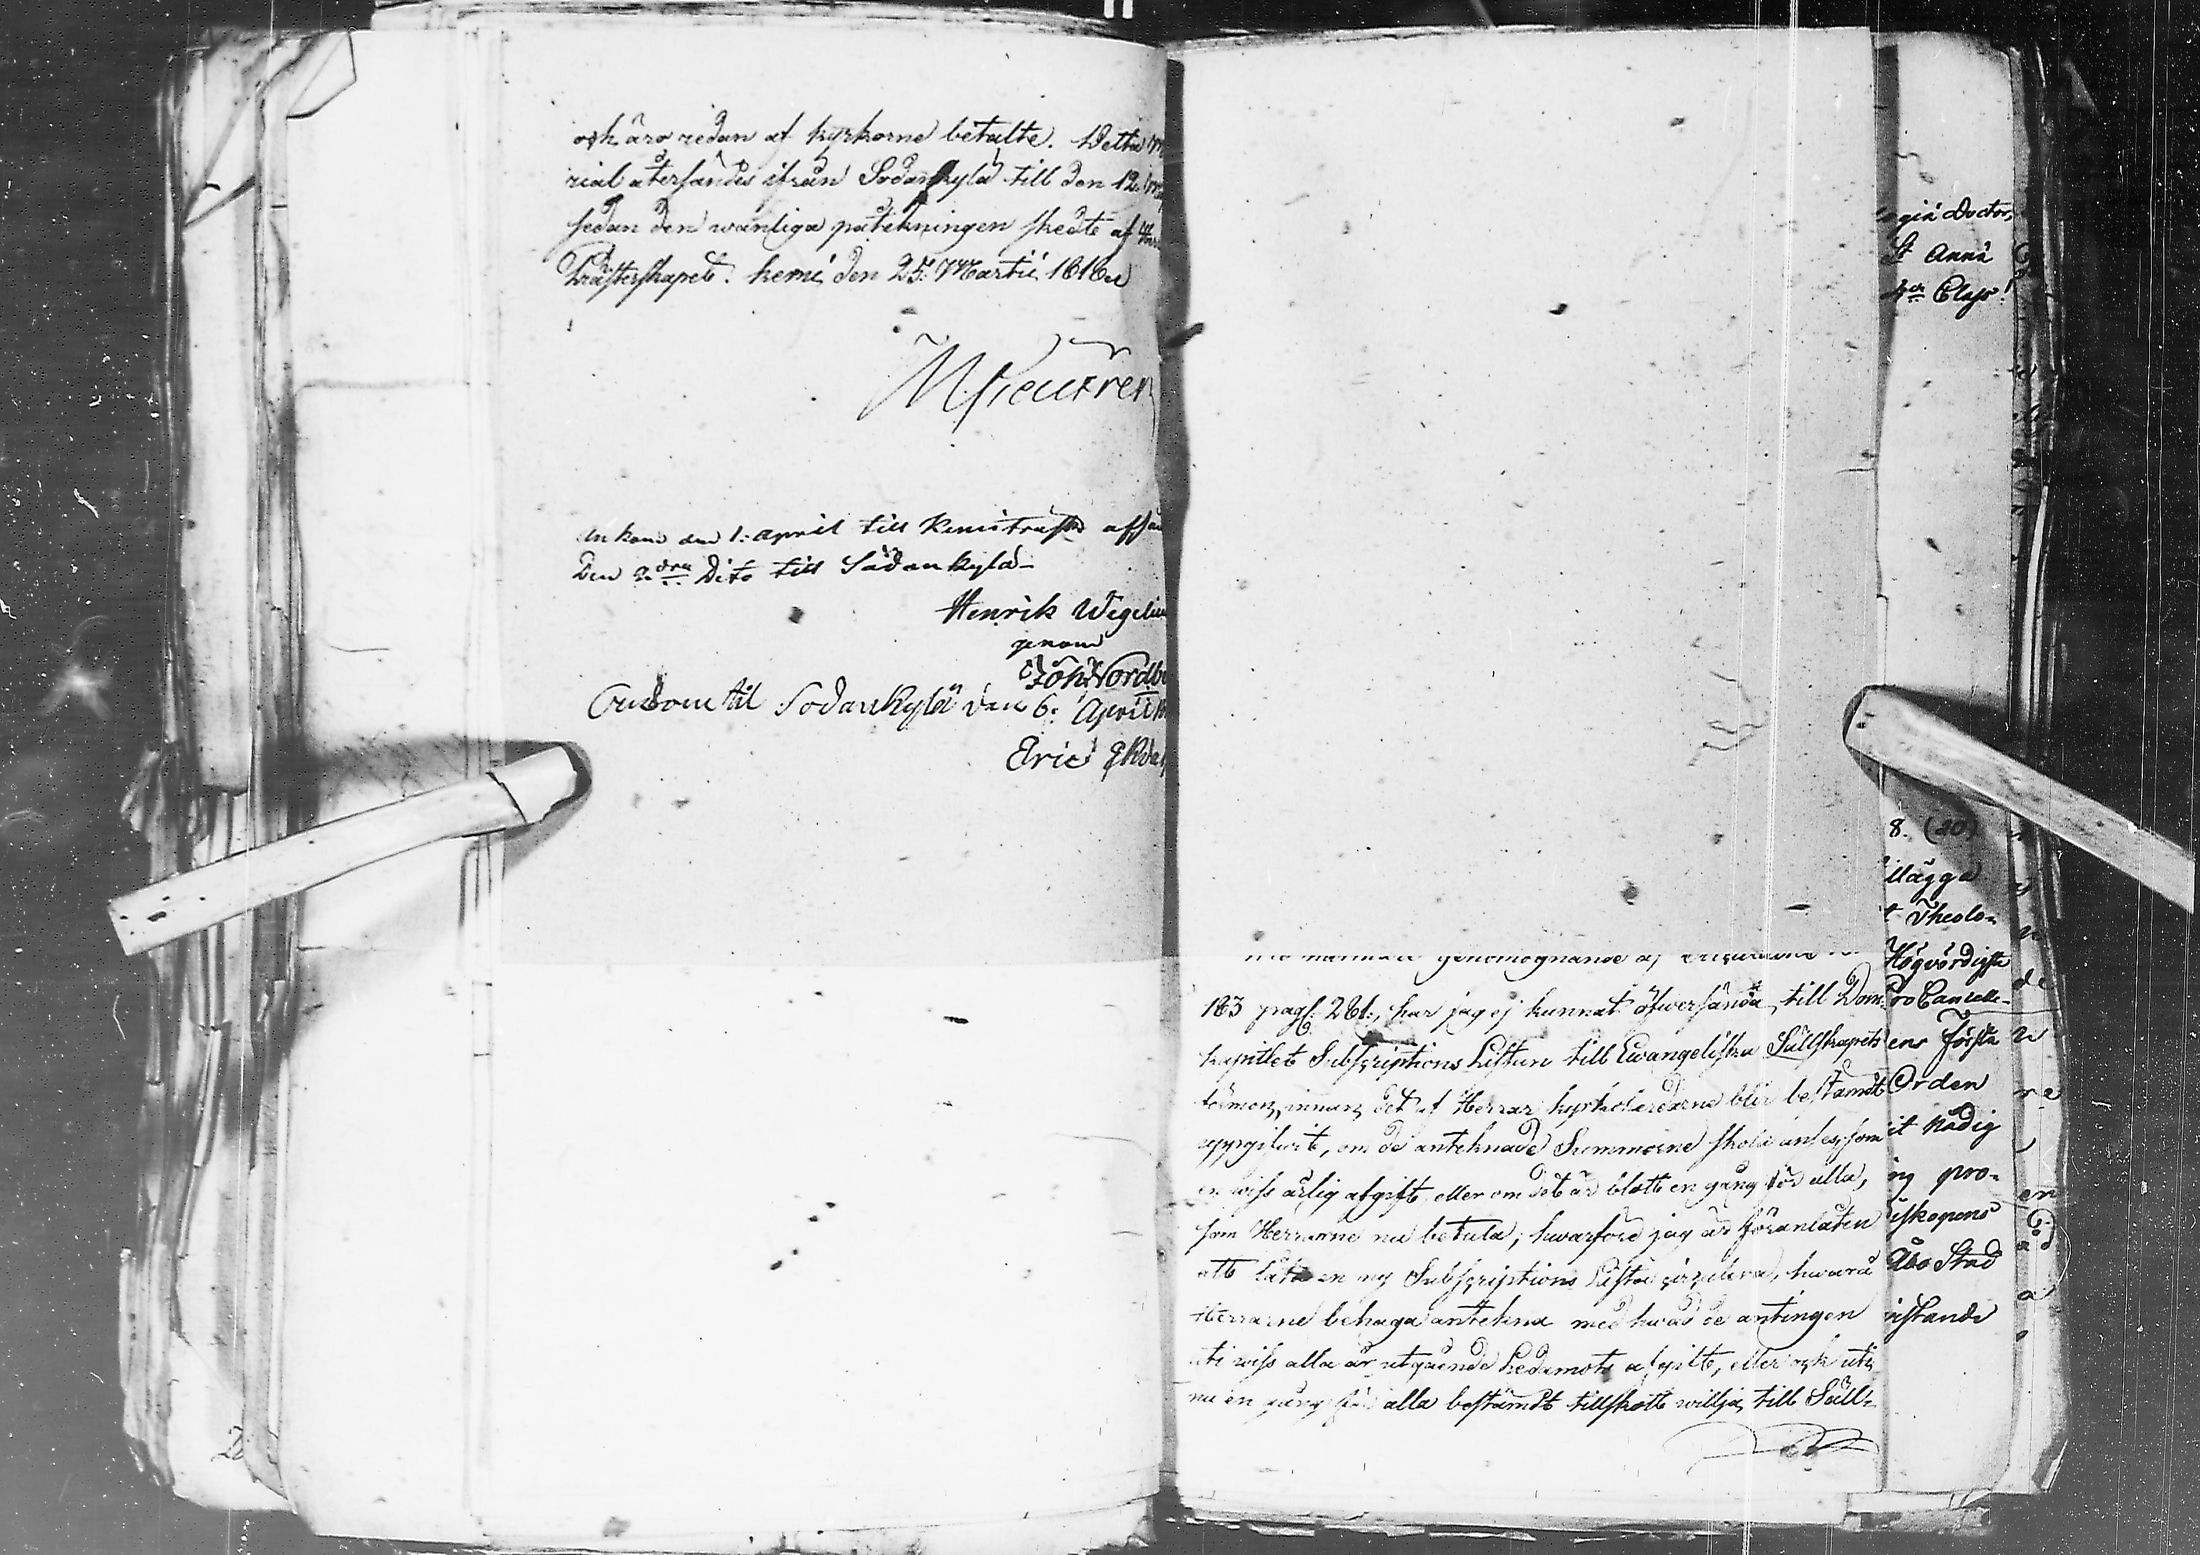 och äro redan af kyrkorne betalte. Detta M
rial återsändes ifrån Sodankylä till den 12.
sedan den wanliga påtekningen skedt af
Prästerskapet. Kemi den 25: Martii 1818.
M Heurren
Ankom den 1: april till Kemiträsk affsän
Den 2dra Dito till Sodankylä
Henrik Wegelius
genom
Joh Nordb
Ankom til Sodankylä den 6: April
Eric Ekdal
genomögnande af
183 pag: 281:, har jag ej kunnat öfwersända till Dom-
kapitlet Subscriptions Listan till Ewangeliska Sällskapets
innan det af Herrar kyrkoherdarne blir bestämdt
uppgifwit, om de anteknade Summorne skola anses som
en wiss årlig afgift, eller om det är blott en gång för alla,
som Herrarne nu betala; hwarföre jag är föranlåten
att låta en ny Subscriptions Lista circulera, hwarå
Herrarne behaga antekna med hwad de antingen
uti wiss alla år utgående Ledamots afgift, eller och uti
nu en gång för alla bestämdt tillskott willja till Säll-
giä Doctor,
St Annä
4de Class!
8. (20)
illägga
t Theolo-
Högvördigste
Pro Cancelle-
ens Första
Orden
it Nådig
ng pro-
iskopens
Åbo Stad
istande